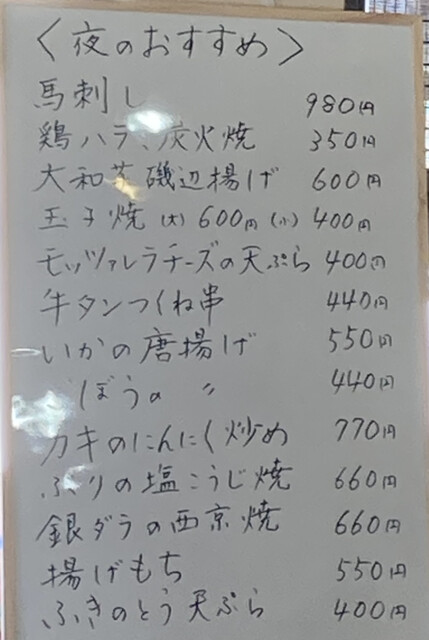 〈夜のおすすめ〉
馬刺し 980円
鶏ハラミ炭火焼 350円
大和芋磯辺揚げ 600円
玉子焼 (大) 600円 (小) 400円
モッツァレラチーズの天ぷら 400円
牛タンつくね串 440円
いかの唐揚げ 550円
ごぼうの 〃 440円
カキのにんにく炒め 770円
ぶりの塩こうじ焼 660円
銀ダラの西京焼 660円
揚げもち 550円
ふきのとう天ぷら 400円